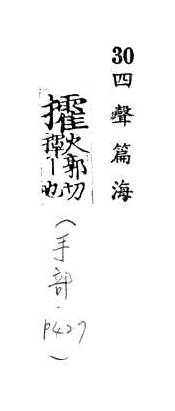 30 四聲篇海
攉火郭切
揮丨也
(手部·P427)